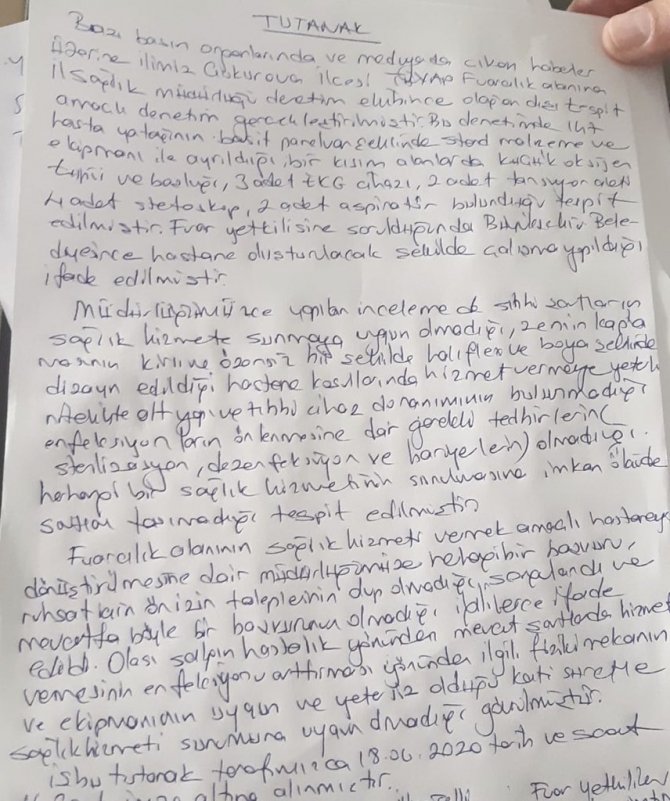 TUTANAK
Bazı basın organlarında ve medyada çıkan haberler
üzerine ilimiz Çukurova ilçesi TÜYAP Fuarcılık alanına
il Sağlık müdürlüğü denetim ekibince olağan dışı tespit
amaçlı denetim gerçekleştirilmiştir. Bu denetimde
hasta yatağının basit paravan şeklinde stand malzeme ve
ekipmanı ile ayrıldığı, bir kısım alanlarda küçük oksijen
tüpü ve başlığı, 3 adet EKG cihazı, 2 adet tansiyon aleti
4 adet stetoskop, 2 adet aspiratör bulunduğu tespit
edilmiştir. Fuar yetkilisine sorulduğunda Büyükşehir Bele-
diyesince hastane oluşturulacak şekilde çalışma yapıldığı
ifade edilmiştir.
Müdürlüğümüzce yapılan incelemede sıhhi şartların
sağlık hizmete sunmaya uygun olmadığı, zemin kapla
masının kirli ve özensiz bir şekilde halıflex ve boya şeklinde
dizayn edildiği hastane koşullarında hizmet vermeye yeterli
nitelikte alt yapı ve tıbbi cihaz donanımının bulunmadığı
enfeksiyonların önlenmesine dair gerekli tedbirlerin(
sterilizasyon, dezenfeksiyon ve banyo) olmadığı.
herhangi bir sağlık hizmetinin sunulmasına imkan
şartları taşımadığı tespit edilmiştir.
Fuarcılık alanının sağlık hizmeti vermek amaçlı hastaneye
dönüştürülmesine dair müdürlüğümüze herhangi bir başvuru,
ruhsatların ön izin taleplerinin olmadığı, sorgulandı ve
mevcutta böyle bir başvurunun olmadığı ilgililerce ifade
edildi. Olası salgın hastalık yönünden mevcut şartlarda hizmet
vermesinin enfeksiyonu arttırması yönünden ilgili fiziki mekanın
ve ekipmanların uygun ve yetersiz olduğu kati surette
sağlık hizmeti sunumuna uygun olmadığı görülmüştür.
işbu tutanak tarafımızca 18.06.2020 tarih ve saat
altına alınmıştır.
Fuar yetkilileri